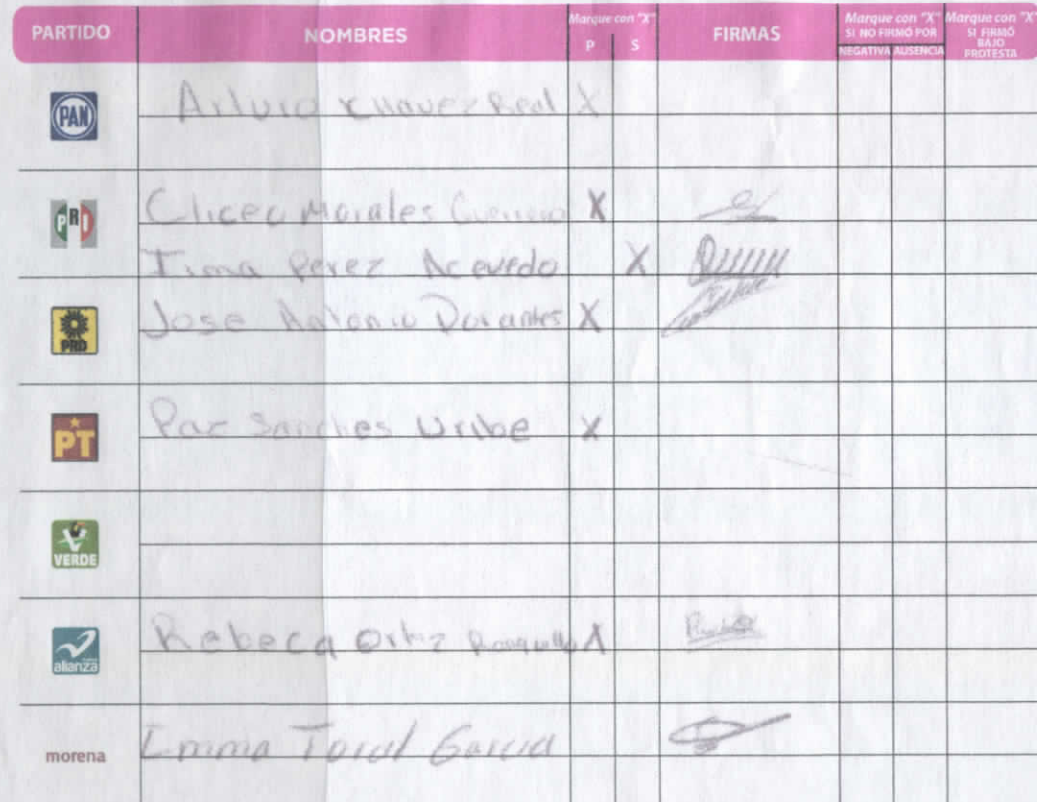 PARTIDO NOMBRES Marque con "X" P S FIRMAS Marque con "X" SI NO FIRMÓ POR NEGATIVA AUSENCIA Marque con "X" SI FIRMÓ BAJO PROTESTA
PAN Arturo Chavez Real X
PRI Cliceo Morales Guerrero X
Irma Perez Acevedo X
PRD Jose Antonio Dorantes X
PT Paz Sanches Uribe X
VERDE
alianza Rebeca Ortiz Ronquillo X
morena Emma Toral Garcia